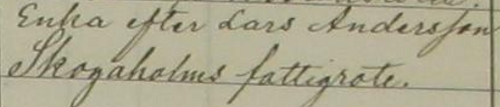 Enka efter Lars Andersson
Skogaholms fattigrote.